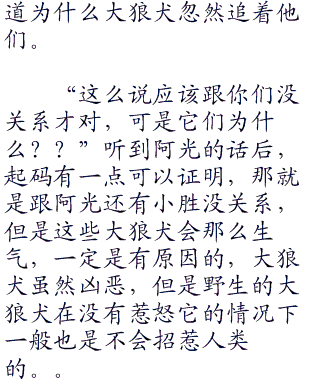 道为什么大狼犬忽然追着他
们。
“这么说应该跟你们没
关系才对，可是它们为什
么？？”听到阿光的话后，
起码有一点可以证明，那就
是跟阿光还有小胜没关系，
但是这些大狼犬会那么生
气，一定是有原因的，大狼
犬虽然凶恶，但是野生的大
狼犬在没有惹怒它的情况下
一般也是不会招惹人类
的。。